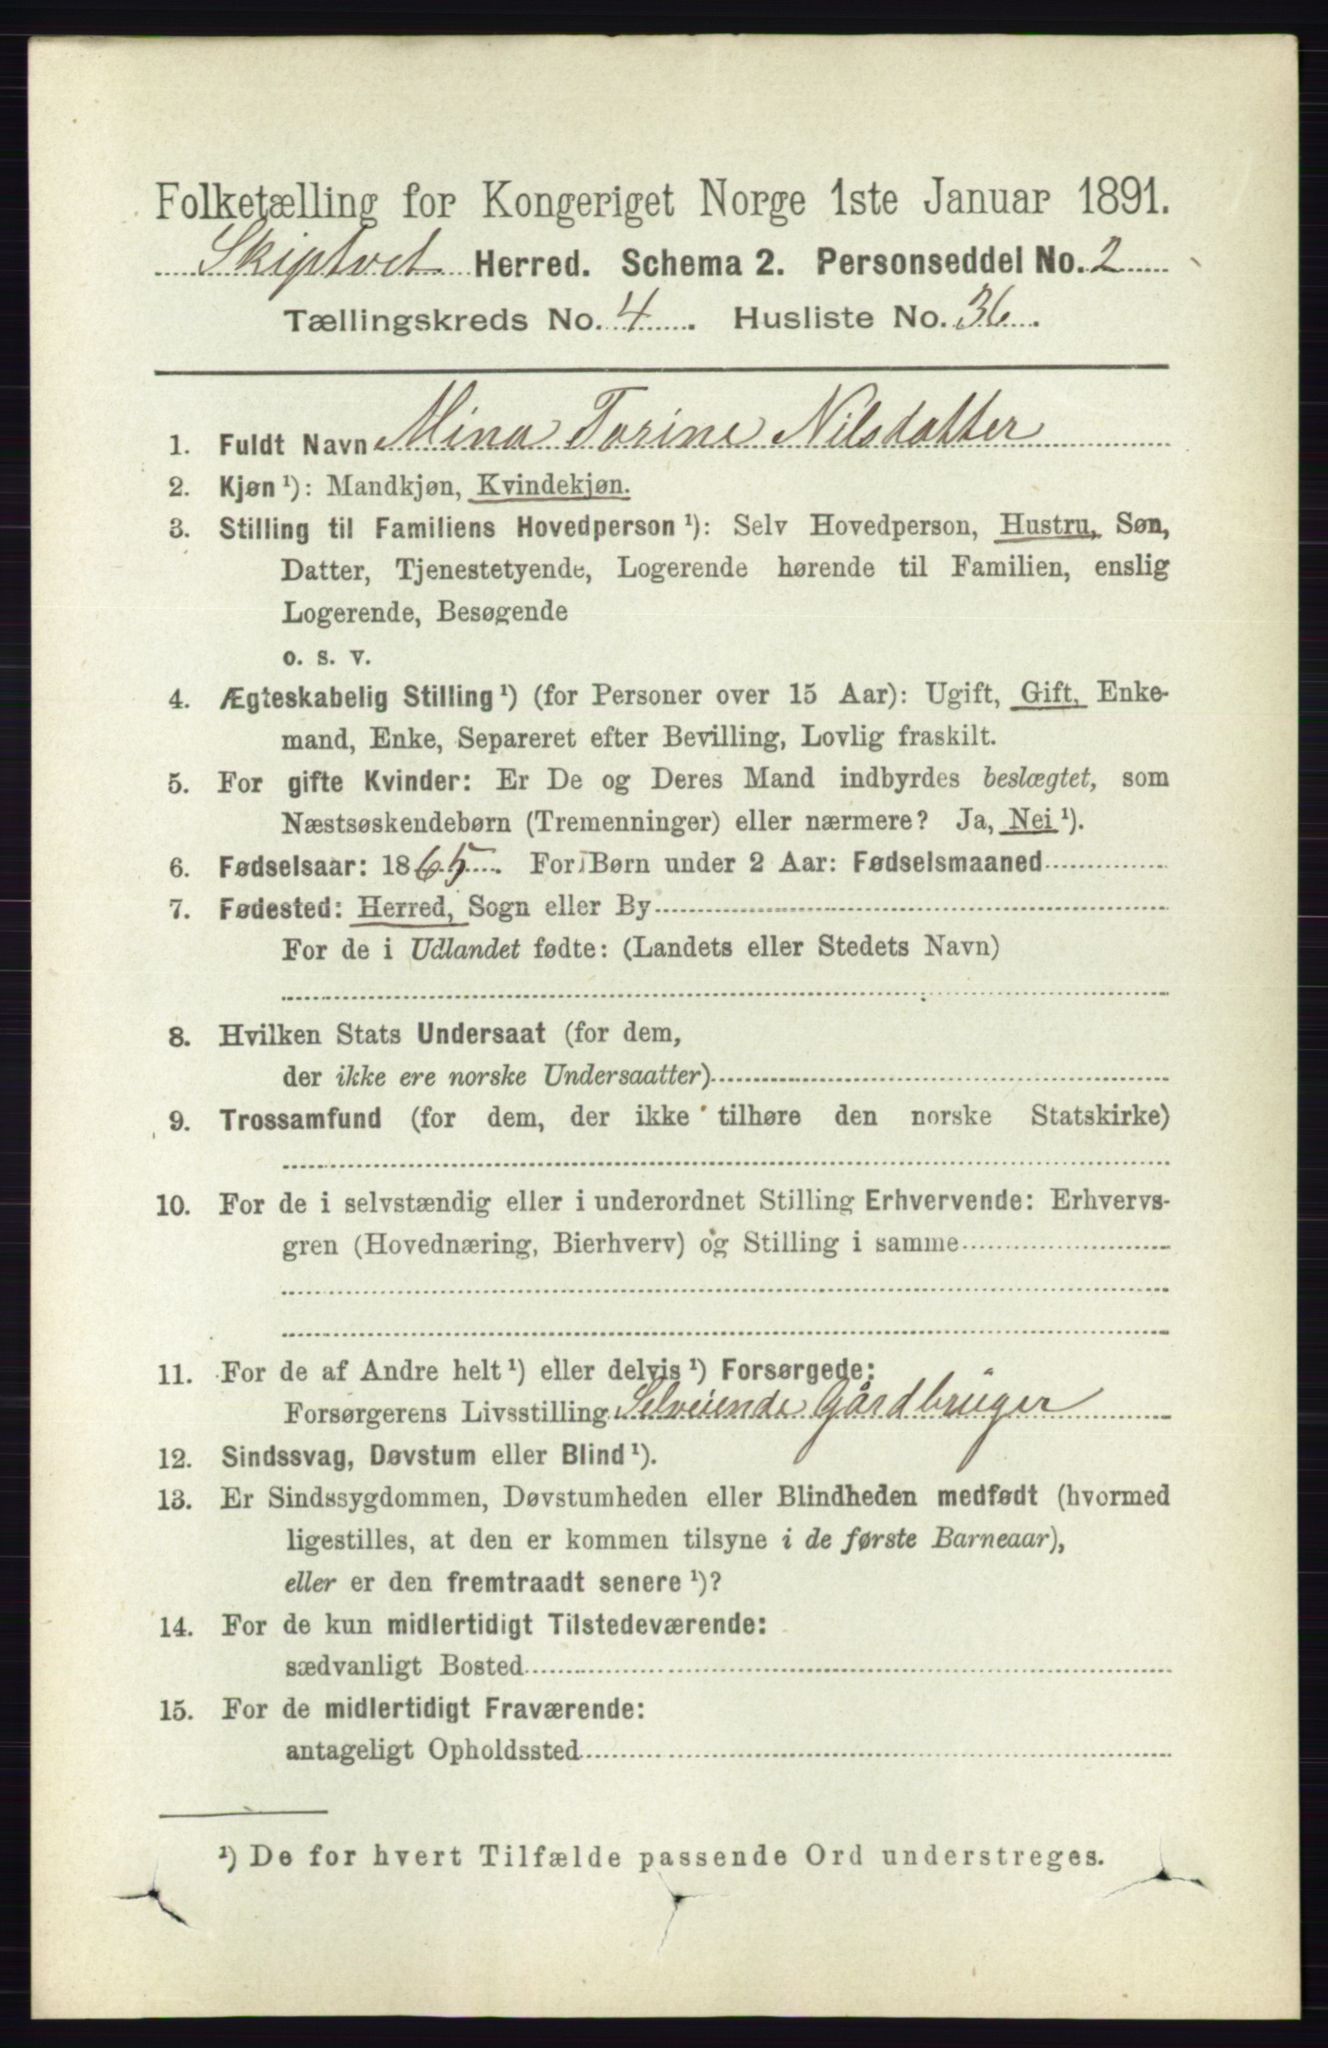 Folketælling for Kongeriget Norge 1ste Januar 1891.
Skiptvet Herred. Schema 2. Personseddel No. 2
Tællingskreds No. 4. Husliste No. 36.
1. Fuldt Navn Mina Torine Nilsdatter
2. Kjøn ¹): Mandkjøn, Kvindekjøn.
3. Stilling til Familiens Hovedperson ¹): Selv Hovedperson, Hustru, Søn,
Datter, Tjenestetyende, Logerende hørende til Familien, enslig
Logerende, Besøgende
o. s. v.
4. Ægteskabelig Stilling ¹) (for Personer over 15 Aar): Ugift, Gift, Enke-
mand, Enke, Separeret efter Bevilling, Lovlig fraskilt.
5. For gifte Kvinder: Er De og Deres Mand indbyrdes beslægtet, som
Næstsøskendebørn (Tremenninger) eller nærmere? Ja, Nei ¹).
6. Fødselsaar: 1865. For Børn under 2 Aar: Fødselsmaaned
7. Fødested: Herred, Sogn eller By
For de i Udlandet fødte: (Landets eller Stedets Navn)
8. Hvilken Stats Undersaat (for dem,
der ikke ere norske Undersaatter)
9. Trossamfund (for dem, der ikke tilhøre den norske Statskirke)
10. For de i selvstændig eller i underordnet Stilling Erhvervende: Erhvervs-
gren (Hovednæring, Bierhverv) og Stilling i samme
11. For de af Andre helt ¹) eller delvis ¹) Forsørgede:
Forsørgerens Livsstilling Selveiende Gårdbrüger
12. Sindssvag, Døvstum eller Blind ¹).
13. Er Sindssygdommen, Døvstumheden eller Blindheden medfødt (hvormed
ligestilles, at den er kommen tilsyne i de første Barneaar),
eller er den fremtraadt senere ¹)?
14. For de kun midlertidigt Tilstedeværende:
sædvanligt Bosted
15. For de midlertidigt Fraværende:
antageligt Opholdssted
¹) De for hvert Tilfælde passende Ord understreges.